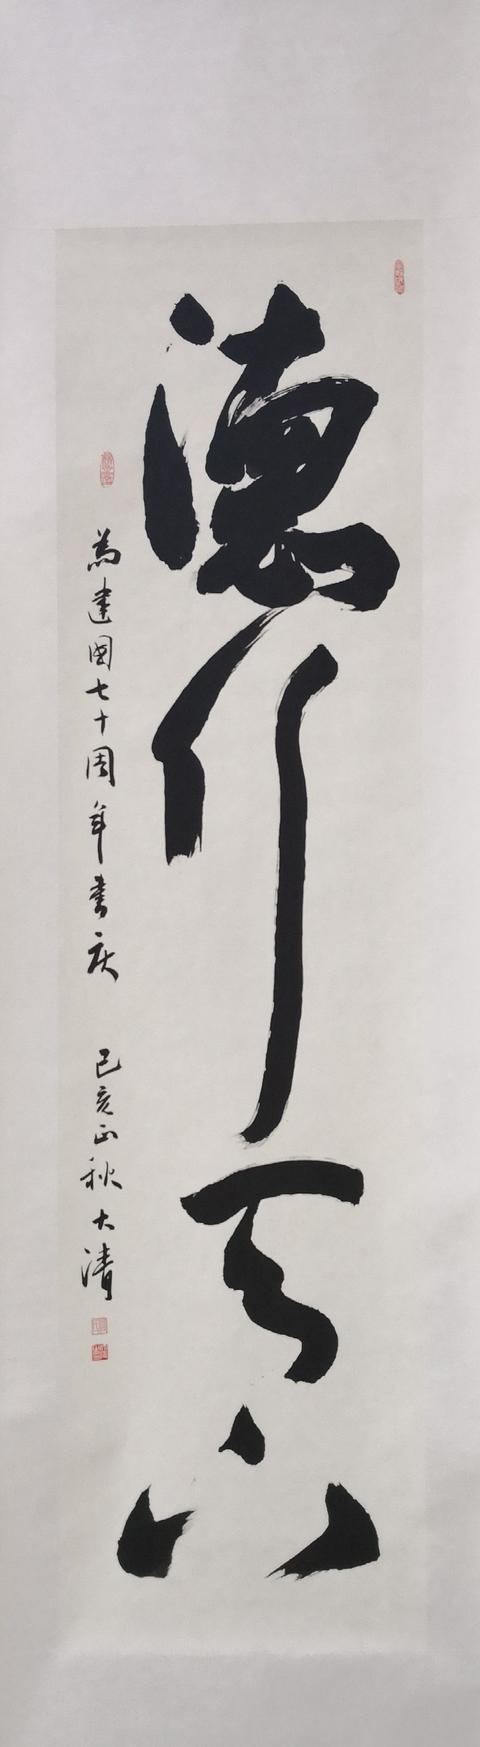 德行天下
为建国七十周年书庆 己亥正秋大清